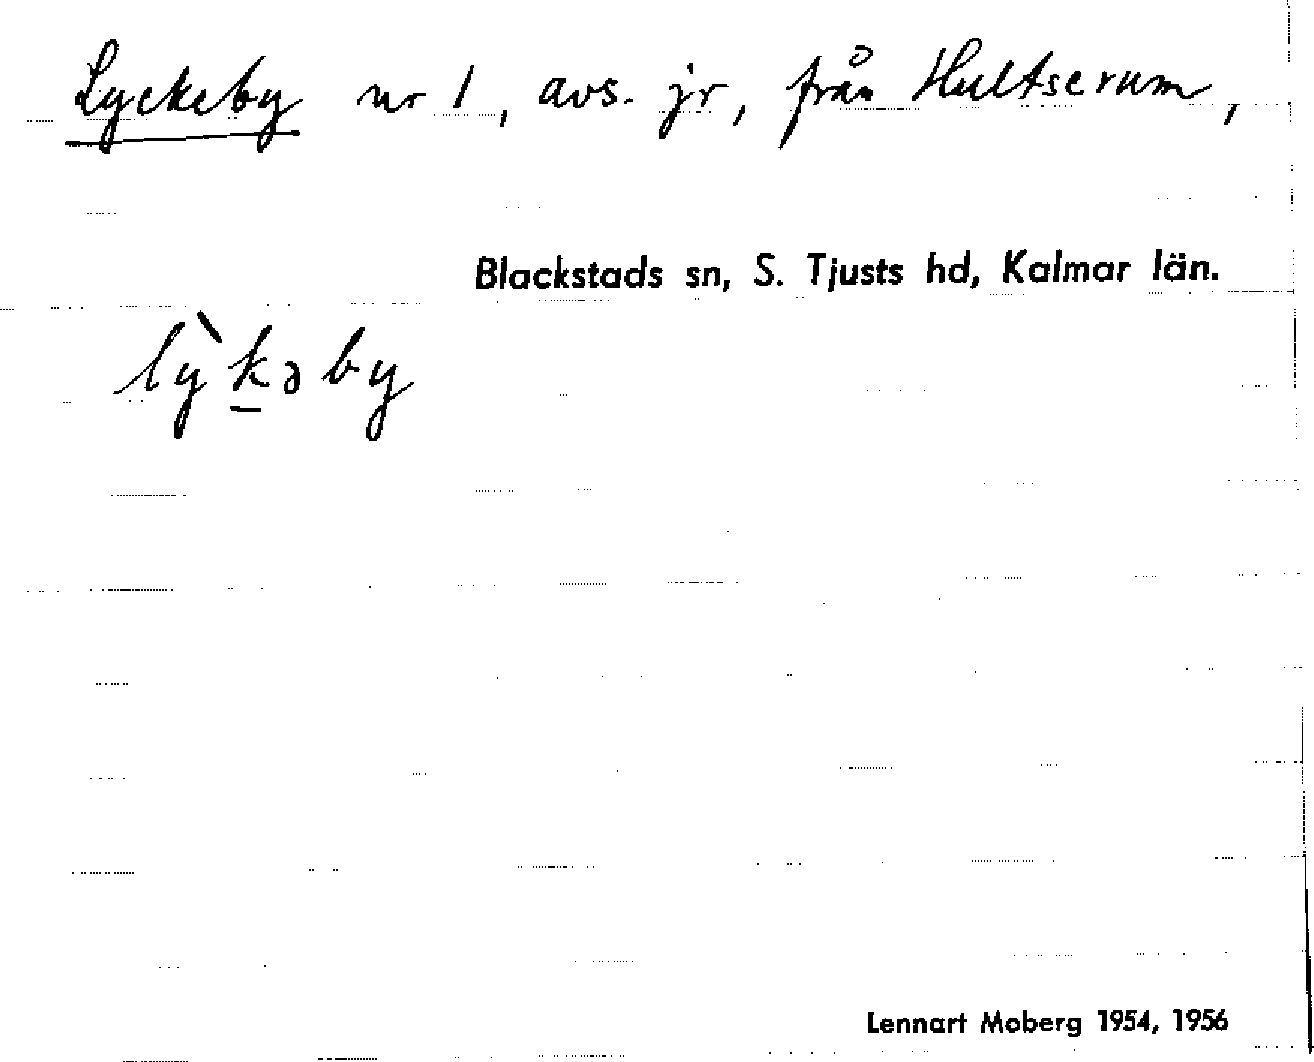 Lyckeby nr 1, avs. jr, från Hultserum,
Blackstads sn, S. Tjusts hd, Kalmar län.
lỳk̲əby
Lennart Moberg 1954, 1956